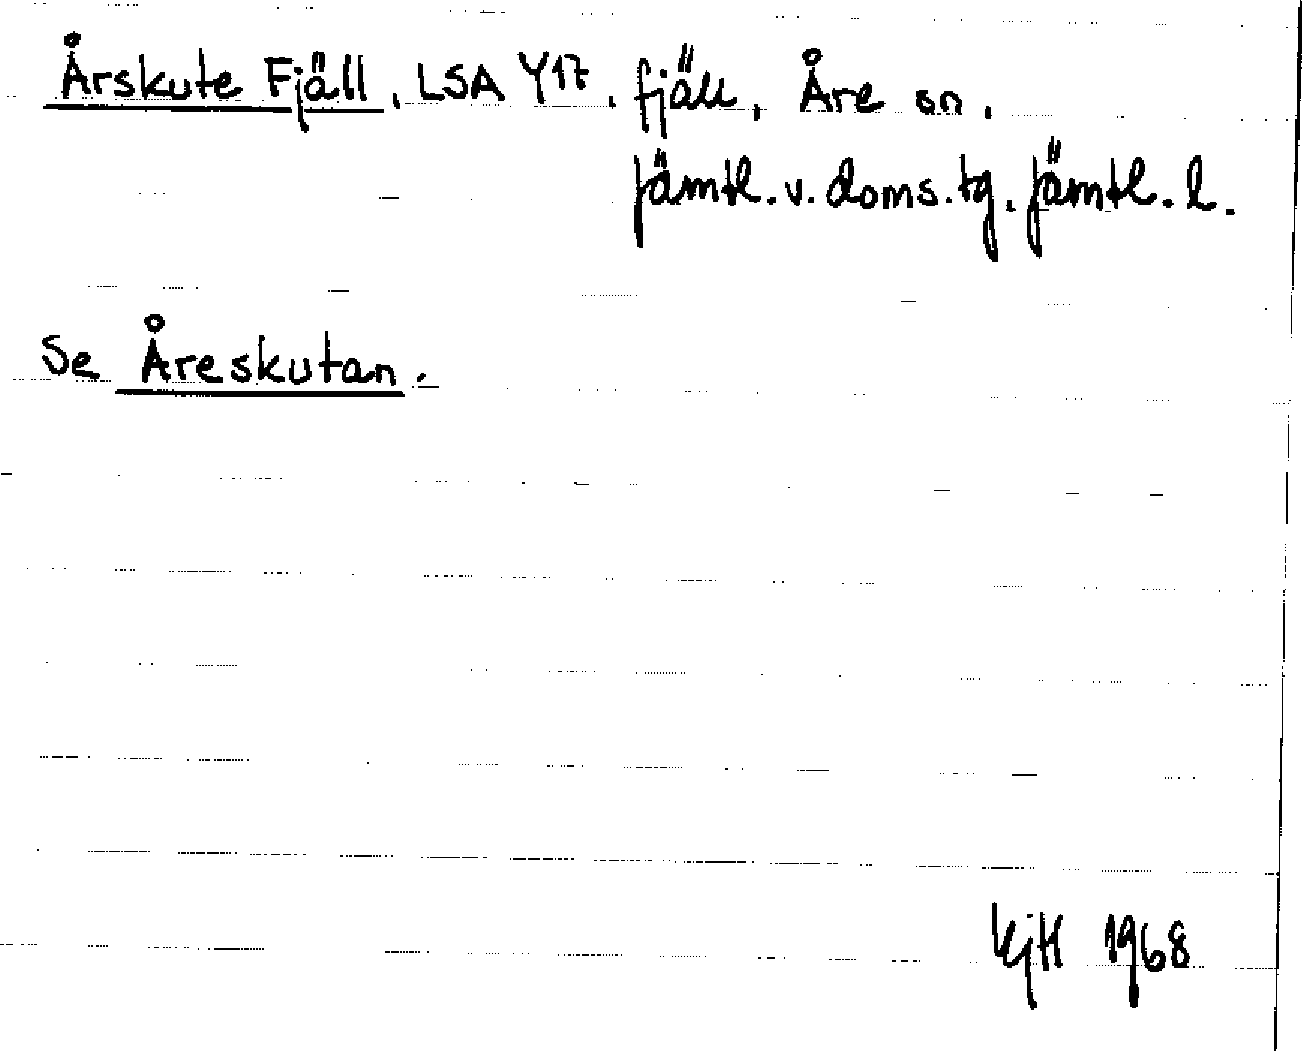 Årskute Fjäll, LSA Y17. fjäll, Åre sn,
Jämtl. v. doms. tg, Jämtl. l.
Se Åreskutan.
KjH 1968